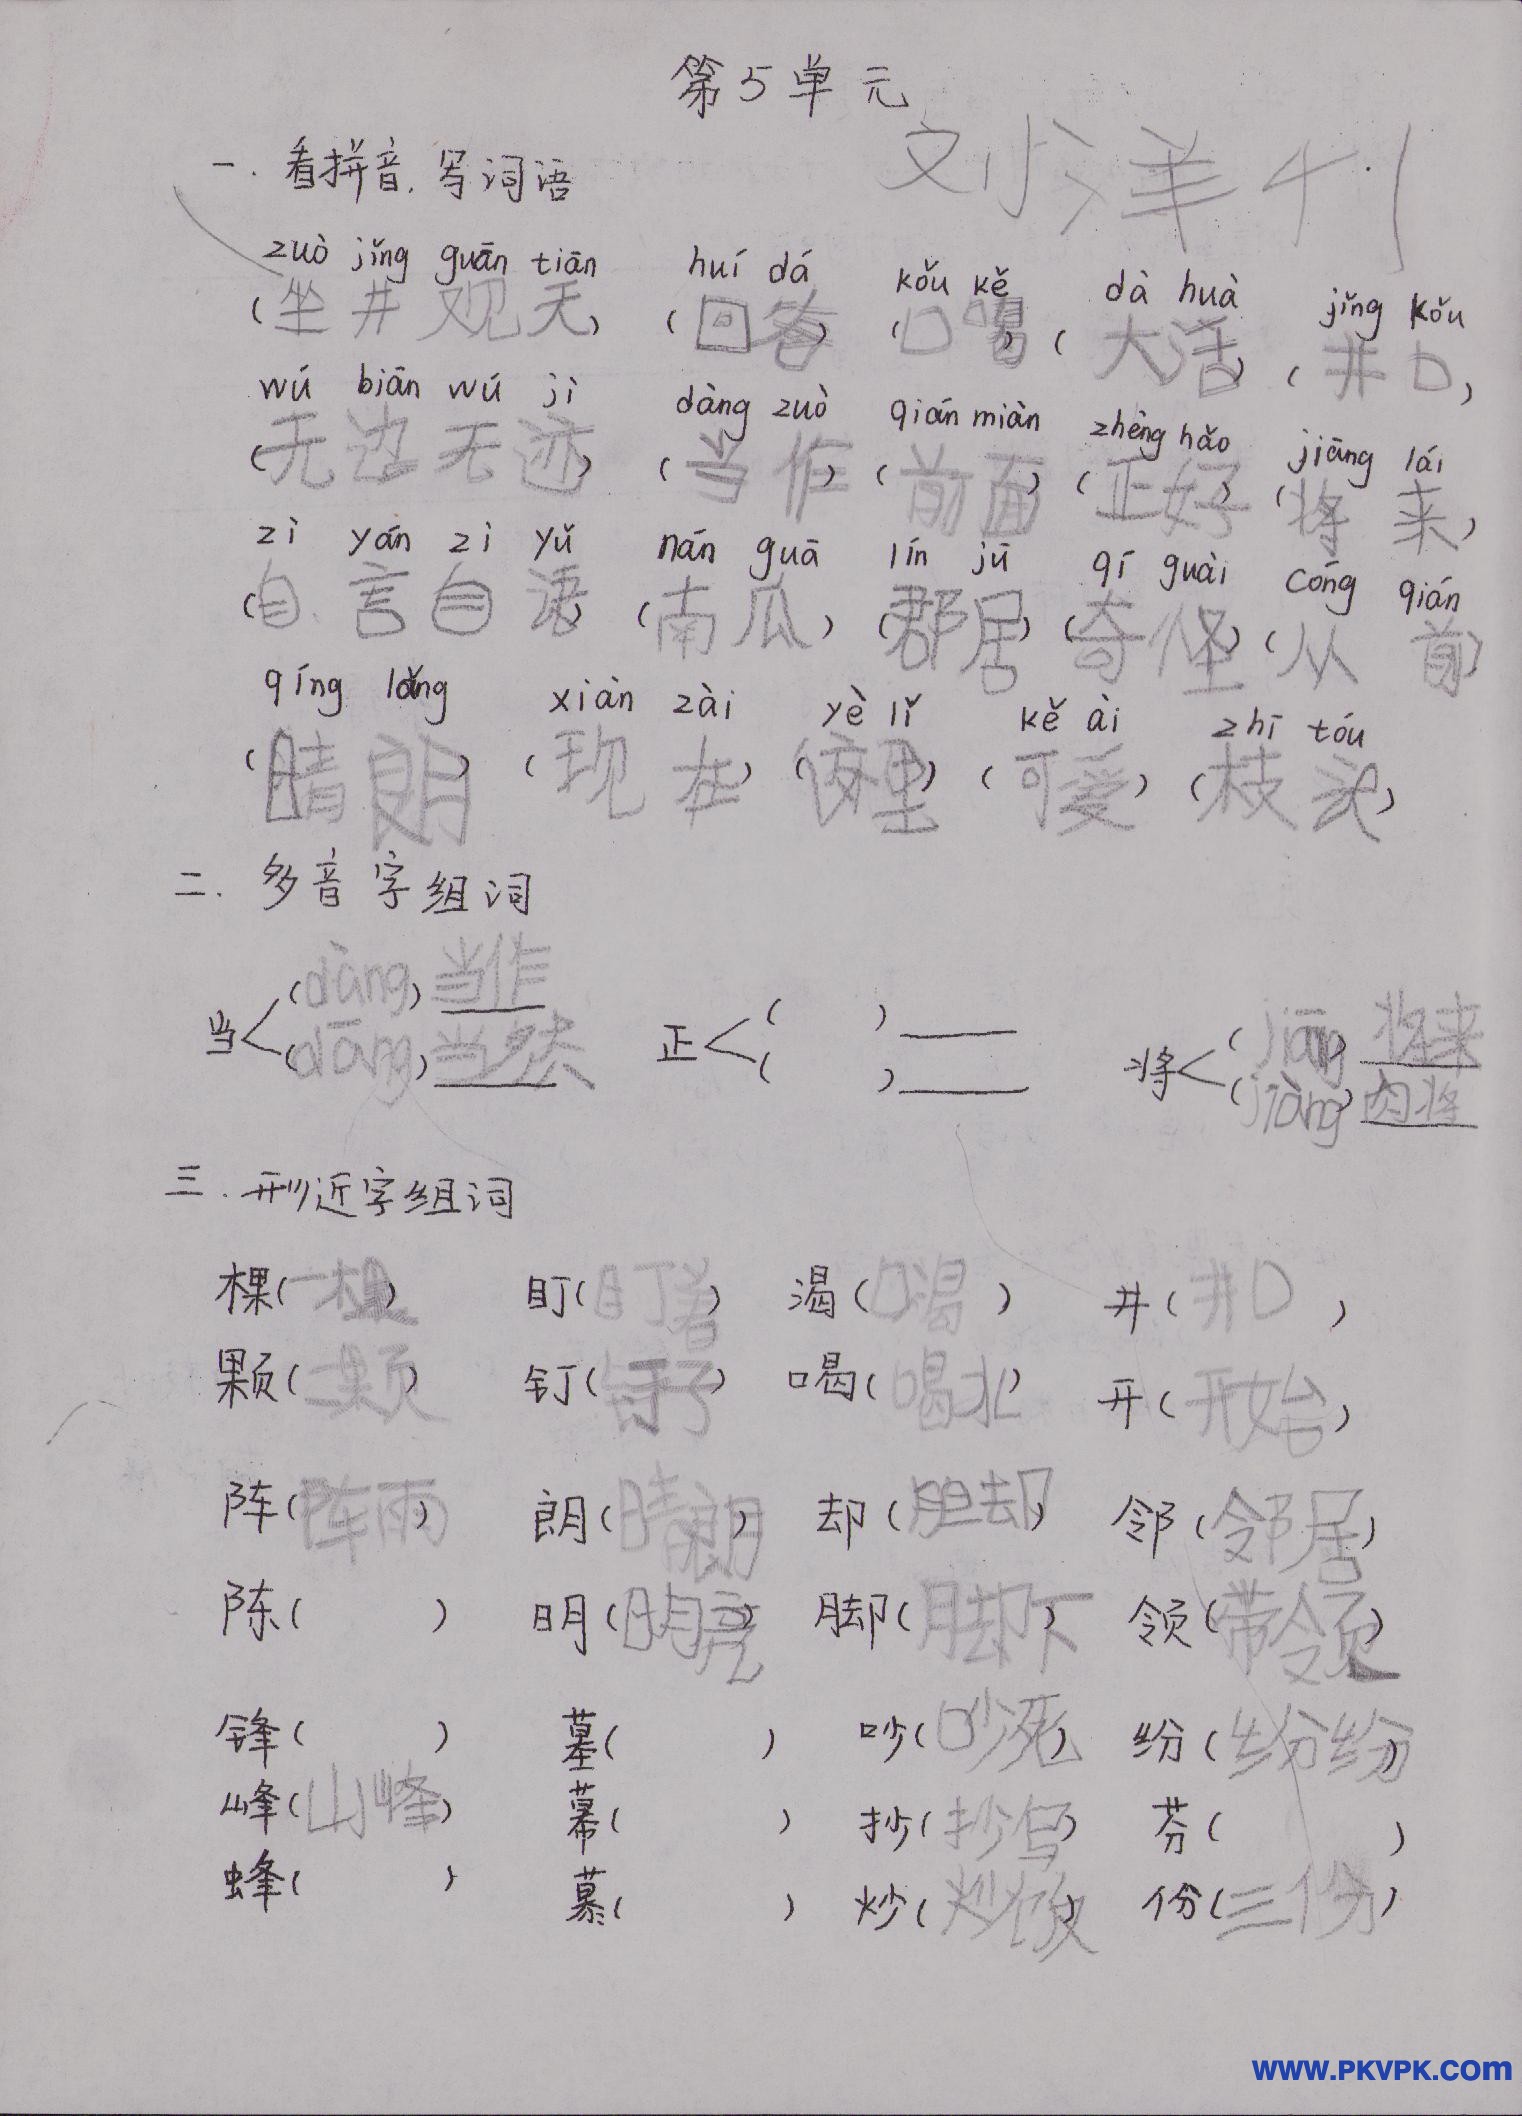 第5单元
刘小洋 41
一.看拼音,写词语
zuò jǐng guān tiān huí dá kǒu kě dà huà jǐng kǒu
(坐井观天) (回答) (口喝) (大话) (井口)
wú biān wú jì dàng zuò qián miàn zhèng hǎo jiāng lái
(无边无迹) (当作) (前面) (正好) (将来)
zì yán zì yǔ nán guā lín jū qí guài cóng qián
(自言自语) (南瓜) (郡居) (奇怪) (从前)
qíng lǎng xiàn zài yè lǐ kě ài zhī tóu
(晴朗) (现在) (夜里) (可爱) (枝头)
二.多音字组词
当 (dàng) 当作 正 ( ) 将 (jiāng) 将来
(dāng) 当然 ( ) (jiàng) 肉将
三.形近字组词
棵(一棵) 盯(盯着) 渴(口渴) 井(井口)
颗(二颗) 钉(钉子) 喝(喝水) 开(开始)
阵(阵雨) 朗(晴朗) 却(胆却) 邻(邻居)
陈( ) 明(明亮) 脚(脚下) 领(带领)
锋( ) 墓( ) 吵(吵死) 纷(纷纷)
峰(山峰) 幕( ) 抄(抄写) 芬( )
蜂( ) 慕( ) 炒(炒饭) 份(三份)
www.PKVPK.com